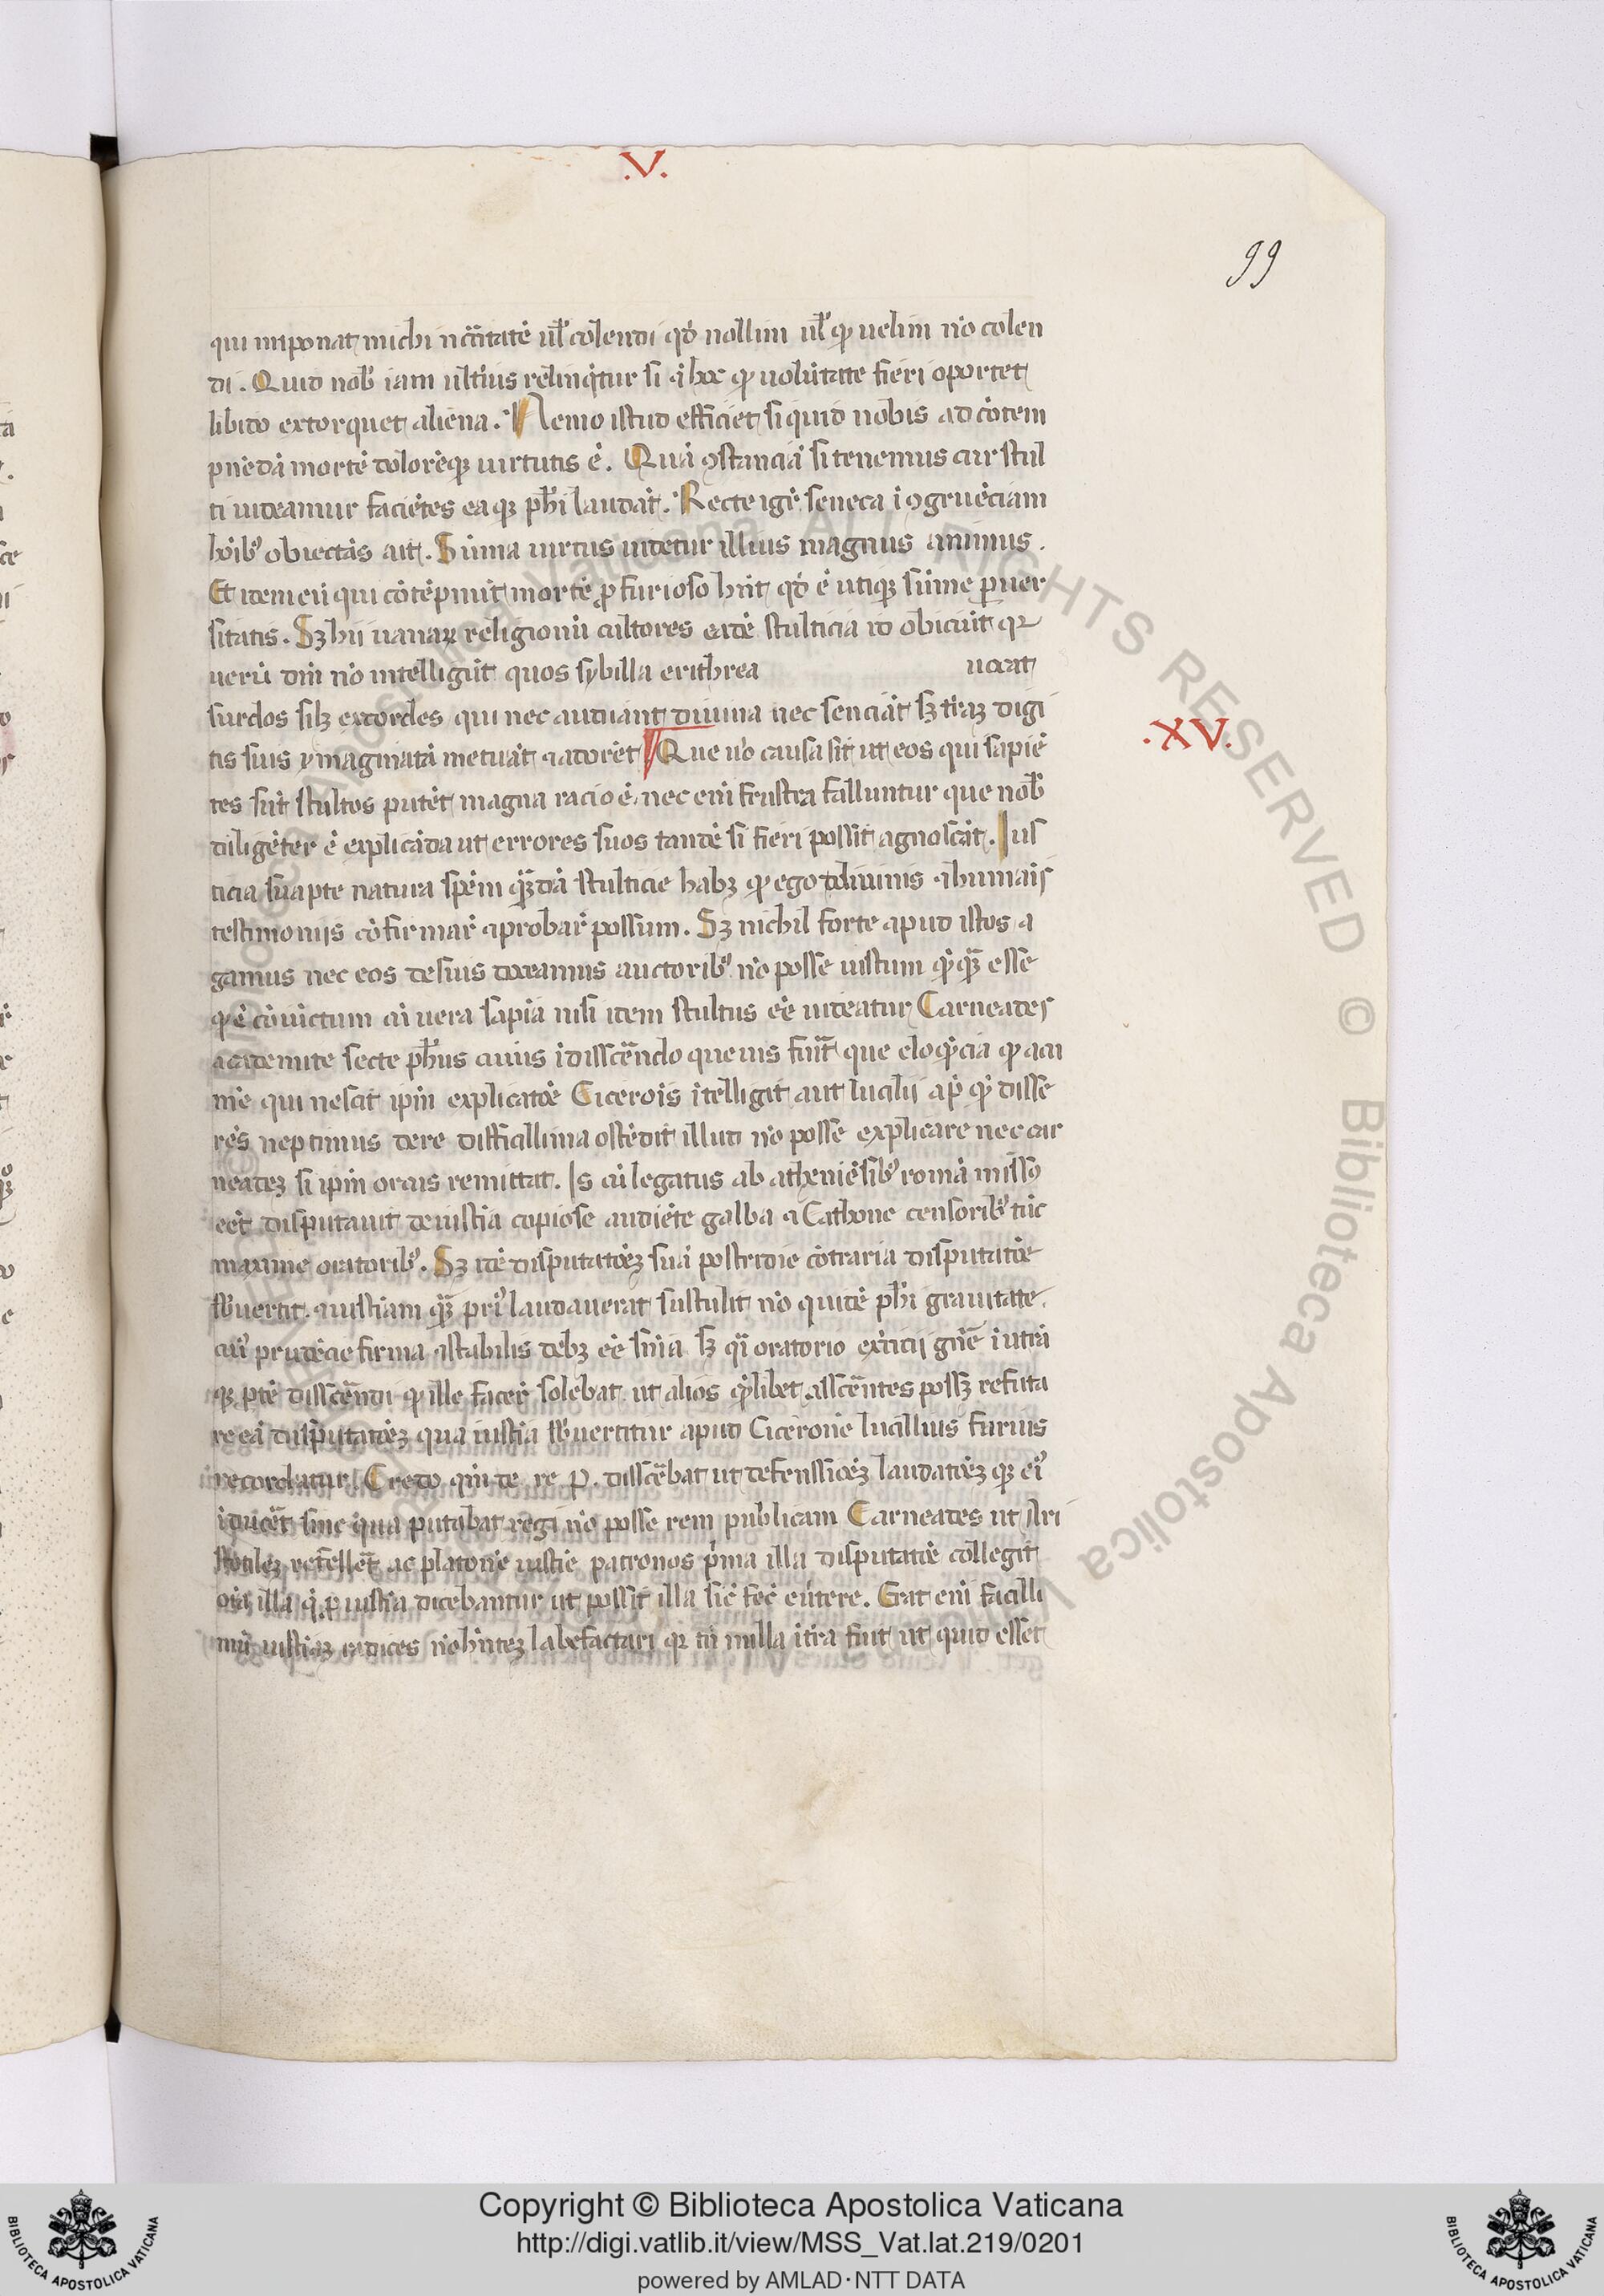 .V.
99
qui imponat michi nc̄citatē ul̄ colendi qđ nollim ul̄ qꝫ uelim nō colen
di. Quid nob̄ iam ulti᷒us relinqͥtur si ⁊ hoc qꝫ uolūtate fieri oportet
libido extorquet aliena. Nemo istud efficiet si quid nobis ad cōtem
pnēdā mortē dolorēqꝫ uirtutis ē. Quā ꝯstanciā si tenemus cur stul
ti uideamur faciētes ea qꝫ phī laudāt. Recte igr̄ seneca īꝯgruēciam
hōibꝰ obiectās ait. Sūma uirtus uidetur illius magnus animus.
Et idem eū qui cōtēpnit mortē ꝓ furioso hn̄t qđ ē utiqꝫ sūme ꝑuer
sitatis. Sꝫ hii uanaꝝ religionū cultores eadē stulticia id obiciūt qꝛ
uerū dm̄ nō intelligūt quos sybilla erithrea uocat
surdos silꝫ excordes qui nec audiant diuina nec senciāt sꝫ t̄raꝫ digi
tis suis ymaginatā metuāt ⁊ adorēt Que uō causa sit ut eos qui sapiē
.XV.
tes sūt stultos putēt magna racio ē. nec enī frustra falluntur que nob̄
diligēter ē explicāda ut errores suos tandē si fieri possit agnoscāt. Ius
ticia suapte natura spēm qꝫdā stulticie habꝫ qꝫ ego ⁊ diuinis ⁊ humāis
testimoniis cōfirmar̄ ⁊ probar̄ possum. Sꝫ nichil forte apud istos a
gamus nec eos de suis doceamus auctoribꝰ nō posse iustum qͥqꝫ esse
qꝫ ē cōiūctum cū uera sapīa nisi idem stultus eē uideatur Carneades
academice secte phūs cuius ī dissēndo que uis fuīt que eloqͥcia qꝫ acu
mē qui nescit ip̄m explicatōe Cicerōis ītelligit aut lucilii ap̄ qꝫ disse
rēs neptunus de re difficillima ostēdit illud nō posse explicare nec car
neadeꝫ si ip̄m orcus remittat. Is cū legatus ab atheniēsibꝰ romā missꝰ
eēt disputauit de iustīa copiose audiēte galba ⁊ Cathone censoribꝰ tūc
maxime oratoribꝰ. Sꝫ idē disputatōeꝫ suā postridie cōtraria disputatōe
sb̄uertit. ⁊ iustiam qꝫ prī laudauerat sustulit nō quidē phī grauitate.
cuī prudēcie firma ⁊ stabilis debꝫ eē sn̄ia sꝫ qī oratorio exc̄icii gn̄e ī utrā
qꝫ ꝑtē dissēndi qꝫ ille facer̄ solebat ut alios qꝫlibet assēntes possꝫ refuta
re eā disputatōeꝫ qua iustīa sb̄uertitur apud Ciceronē lucillius furius
recordatur. Credo qm̄ de re p. dissēbat ut defenssiōeꝫ laudatōeꝫ qꝫ eī
īducēt sine qua putabat regi nō posse rem publicam Carneades ut Ari
stotileꝫ refellēt ac platonē iustīe patronos pͥma illa disputatōe collegit
oīa illa q̄ ꝓ iustīa dicebantur ut possit illa sic̄ fec̄ eūtere. Erat enī facilli
mū iustīaꝫ radices nō hn̄teꝫ labefactari qꝛ tū nulla ī t̄ra fuit ut quid esset
Copyright © Biblioteca Apostolica Vaticana
http://digi.vatlib.it/view/MSS_Vat.lat.219/0201
powered by AMLAD·NTT DATA